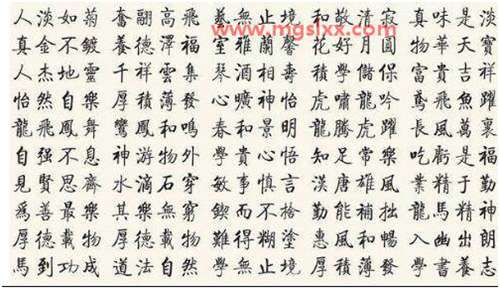 人淡如菊 奮翮高飛 藝無止境 和敬清寂 真味是淡
真金不鍍 養德澤福 室雅蘭馨 花好月圓 物華天寶
人杰地靈 千祥雲集 琴酒相壽 積學儲保 富貴吉祥
怡然自樂 厚積薄發 心曠神怡 虎嘯龍吟 鳶飛魚躍
龍飛鳳舞 鸞鳳和鳴 春和景明 龍騰虎躍 長風萬裏
自强不息 神游物外 學貴心悟 知足常樂 吃虧是福
見賢思齊 水滴石穿 敏事慎言 漢唐雄風 業精于勤
爲善最樂 其樂無窮 鍥而不捨 勤能補拙 龍馬精神
厚德載物 厚德載物 難得糊塗 惠風和暢 入幽出朗
馬到功成 道法自然 學無止境 厚積薄發 學書養志
www.mgslxx.com